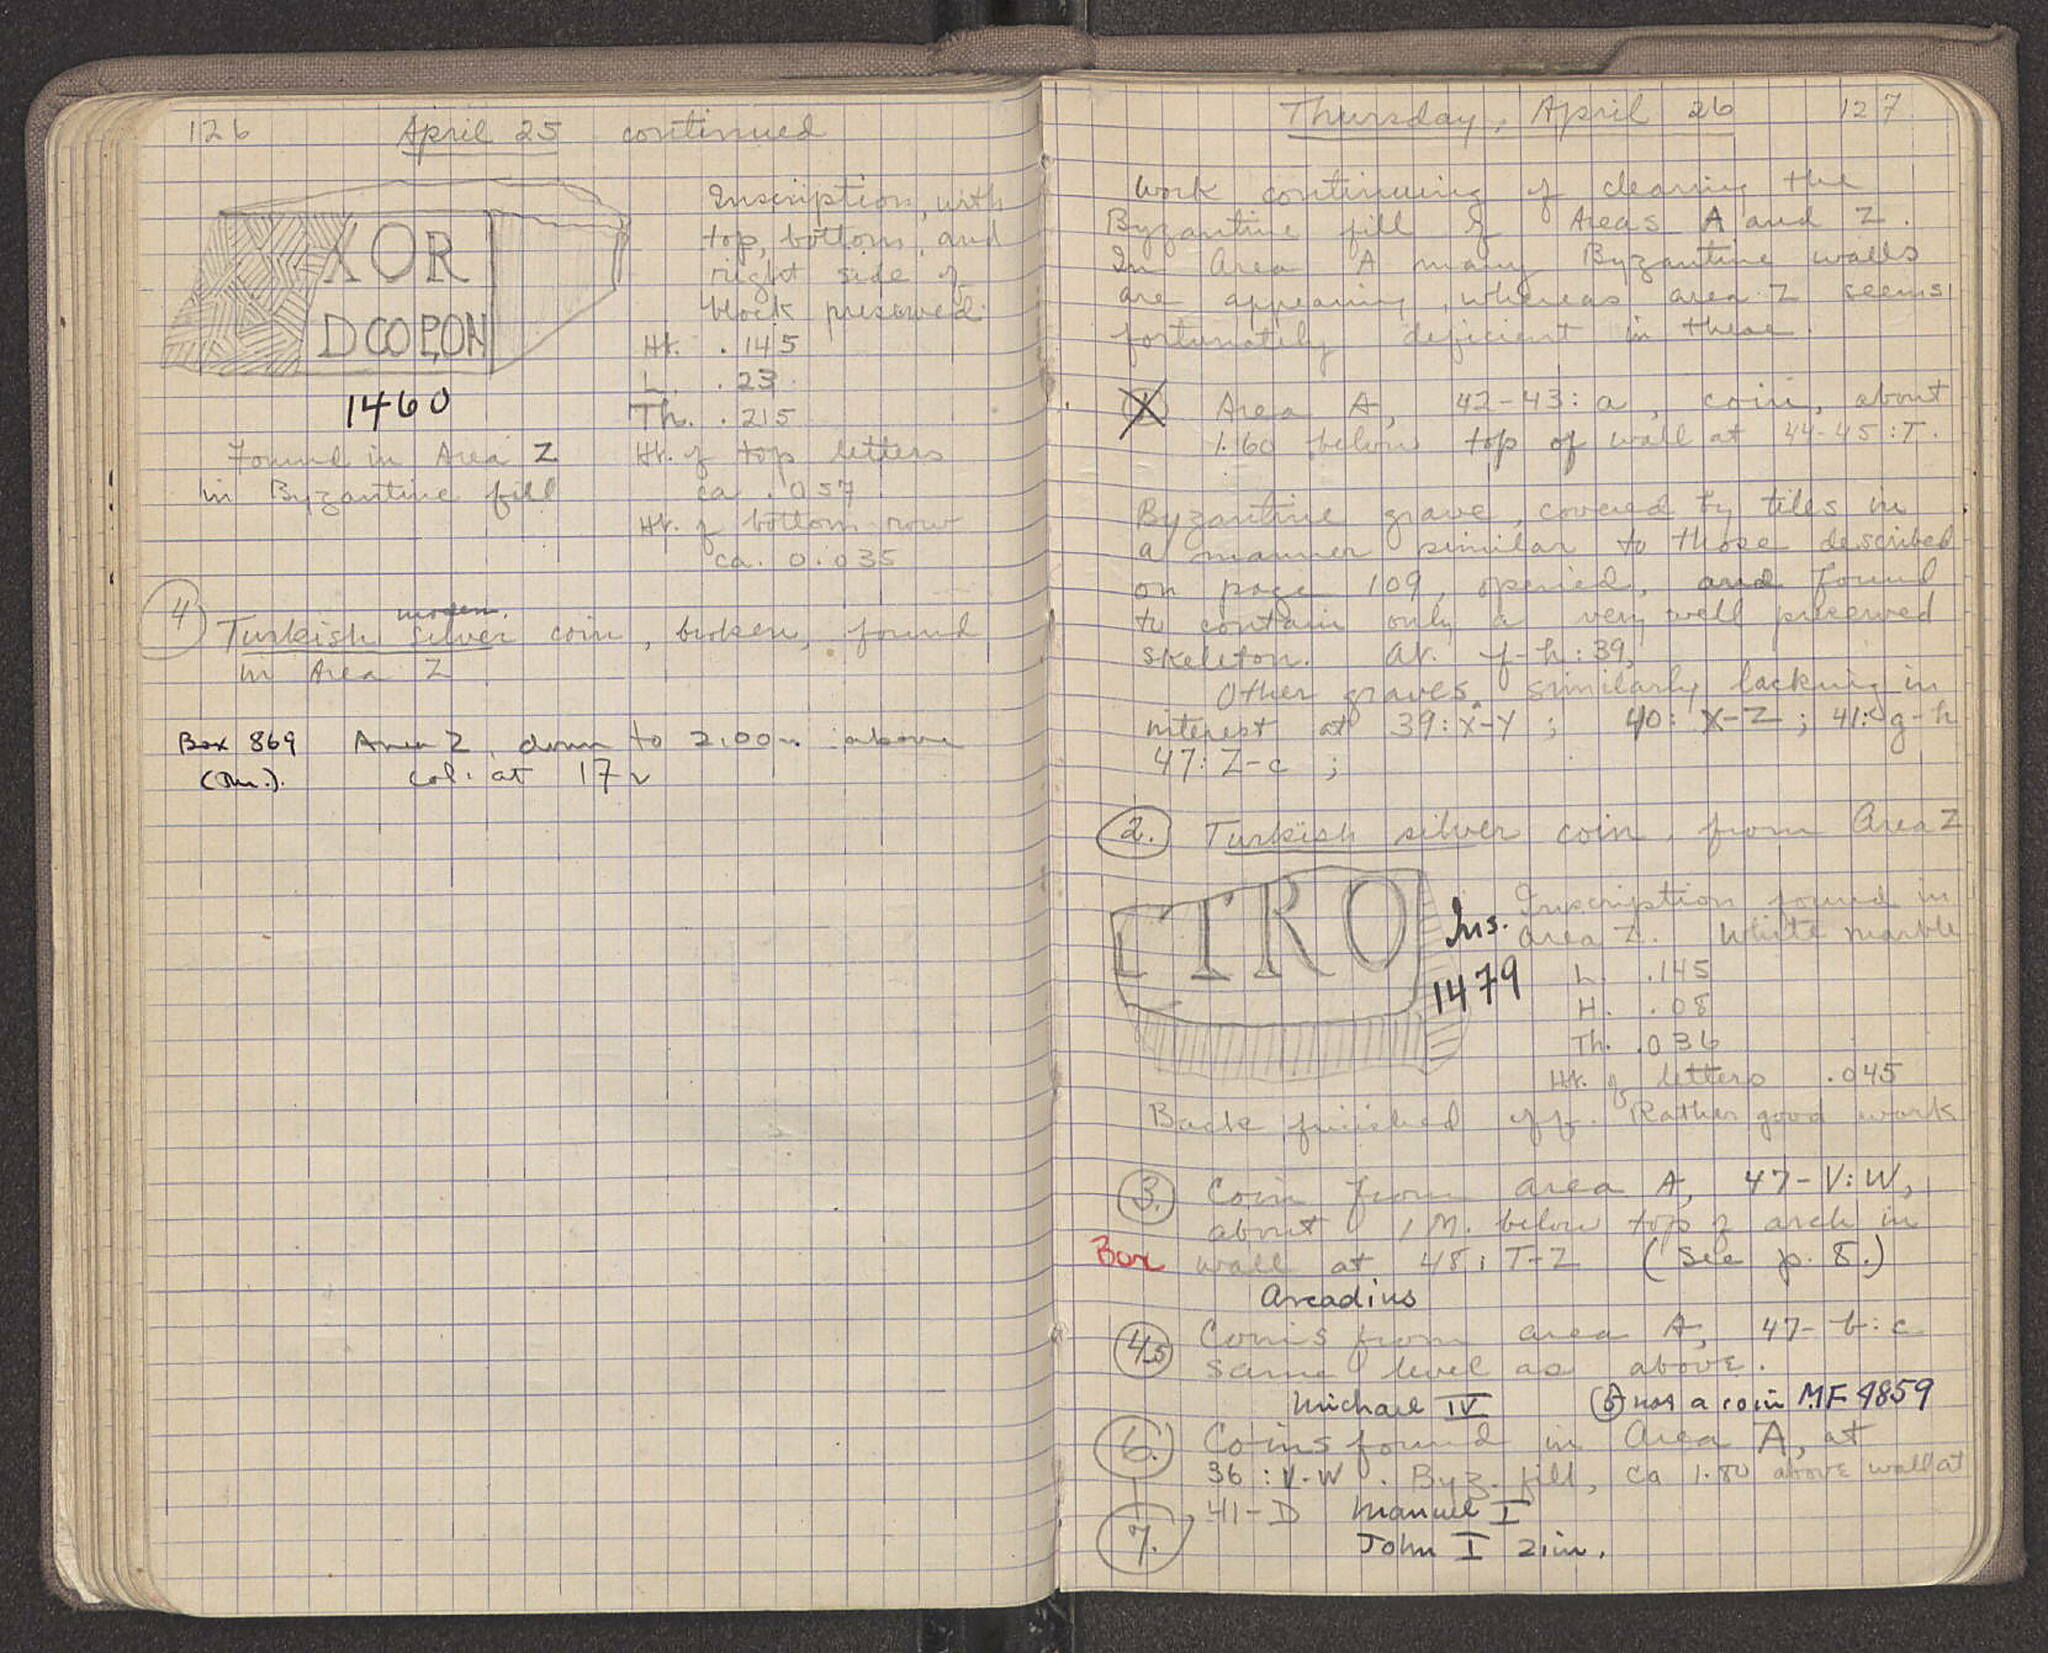 126 April 25 continued
XOR
DCOPON
1460
Inscription, with
top, bottom, and
right side of
block preserved.
Ht. .145
L. .23
Th. .215
Ht. of top letters
ca .057
Ht. of bottom row
ca. 0.035
Found in Area Z
in Byzantine fill
modern.
4 Turkish silver coin, broken, found
in Area Z
Box 869 Area Z, down to 2.00m above
col. at 17
Thursday, April 26 127
Work continuing of clearing the
Byzantine fill of Areas A and Z.
In Area A many Byzantine walls
are appearing, whereas area Z seems
fortunately deficient in these.
1 Area A, 42-43:a, coin, about
1.60 below top of wall at 44-45:T.
Byzantine grave, covered by tiles in
a manner similar to those described
on page 109, opened, and found
to contain only a very well preserved
skeleton. At. f-h:39,
Other graves, similarly lacking in
interest at 39:X-Y; 40:X-Z; 41:g-h
47:Z-c;
2. Turkish silver coin, from Area Z
TRO
Ins.
1479
Inscription found in
Area Z. White marble
L. .145
H. .08
Th. .036
Ht. of letters .045
Back finished off. Rather good work
3. Coin from area A, 47-V:W,
about 1 M. below top of arch in
Box wall at 48:T-Z (See p. 8.)
Arcadius
4,5 Coins from area A, 47-b:c
same level as above.
Michael IV 5 not a coin MF 4859
6. Coins found in Area A, at
36:V-W. Byz. fill, ca 1.80 above wall at
41-D Manuel I
7. John I Zim.